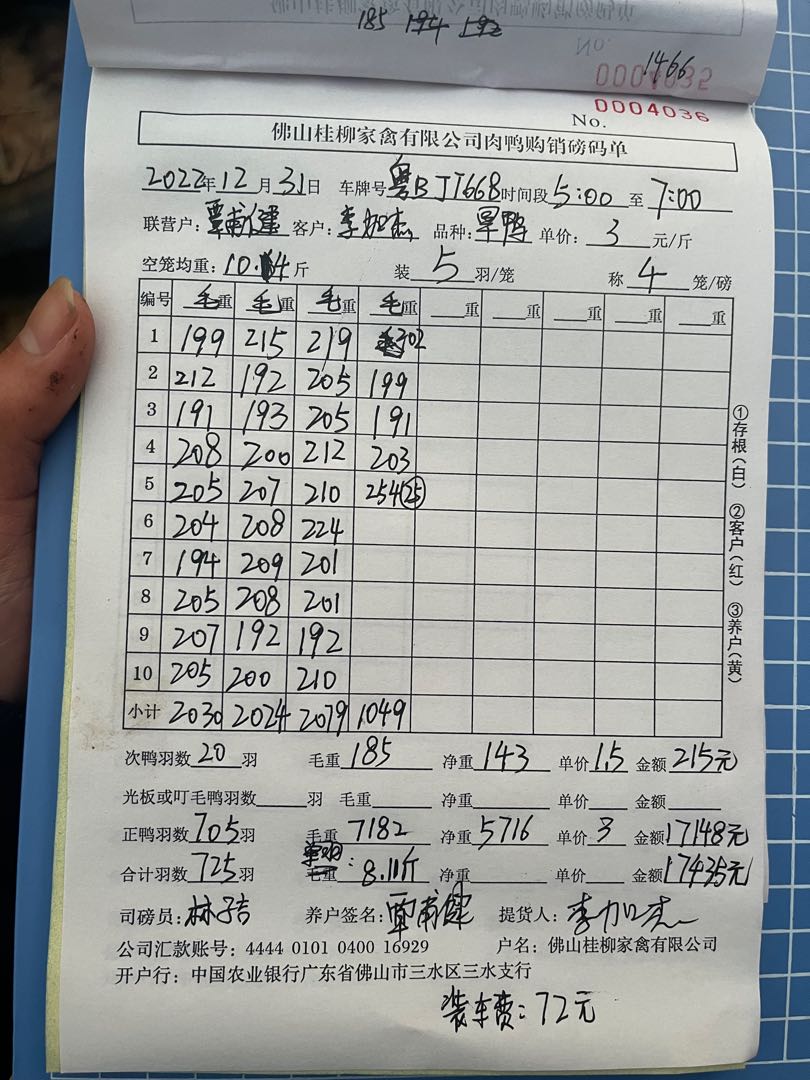 185 194 192
No.
1466
0004032
No. 0004036
佛山桂柳家禽有限公司肉鸭购销磅码单
2022年12月31日 车牌号粤BJT668时间段5:00至7:00
联营户:覃甫健 客户:李加杰 品种:旱鸭 单价:3元/斤
空笼均重:10.14斤 装5羽/笼 称4笼/磅
编号 毛重 毛重 毛重 毛重 重 重 重 重 重
1 199 215 219 202
2 212 192 205 199
3 191 193 205 191
4 208 200 212 203
5 205 207 210 254(25)
6 204 208 224
7 194 209 201
8 205 208 201
9 207 192 192
10 205 200 210
小计 2030 2024 2079 1049
次鸭羽数20羽 毛重185 净重143 单价1.5 金额215元
光板或叮毛鸭羽数 羽 毛重 净重 单价 金额
正鸭羽数705羽 毛重7182 净重5716 单价3 金额17148元
合计羽数725羽 毛重 单羽:8.11斤 净重 单价 金额17435元
司磅员:林子吉 养户签名:覃甫健 提货人:李加杰
公司汇款账号:4444 0101 0400 16929 户名:佛山桂柳家禽有限公司
开户行:中国农业银行广东省佛山市三水区三水支行
装车费:72元
①存根(白) ②客户(红) ③养户(黄)